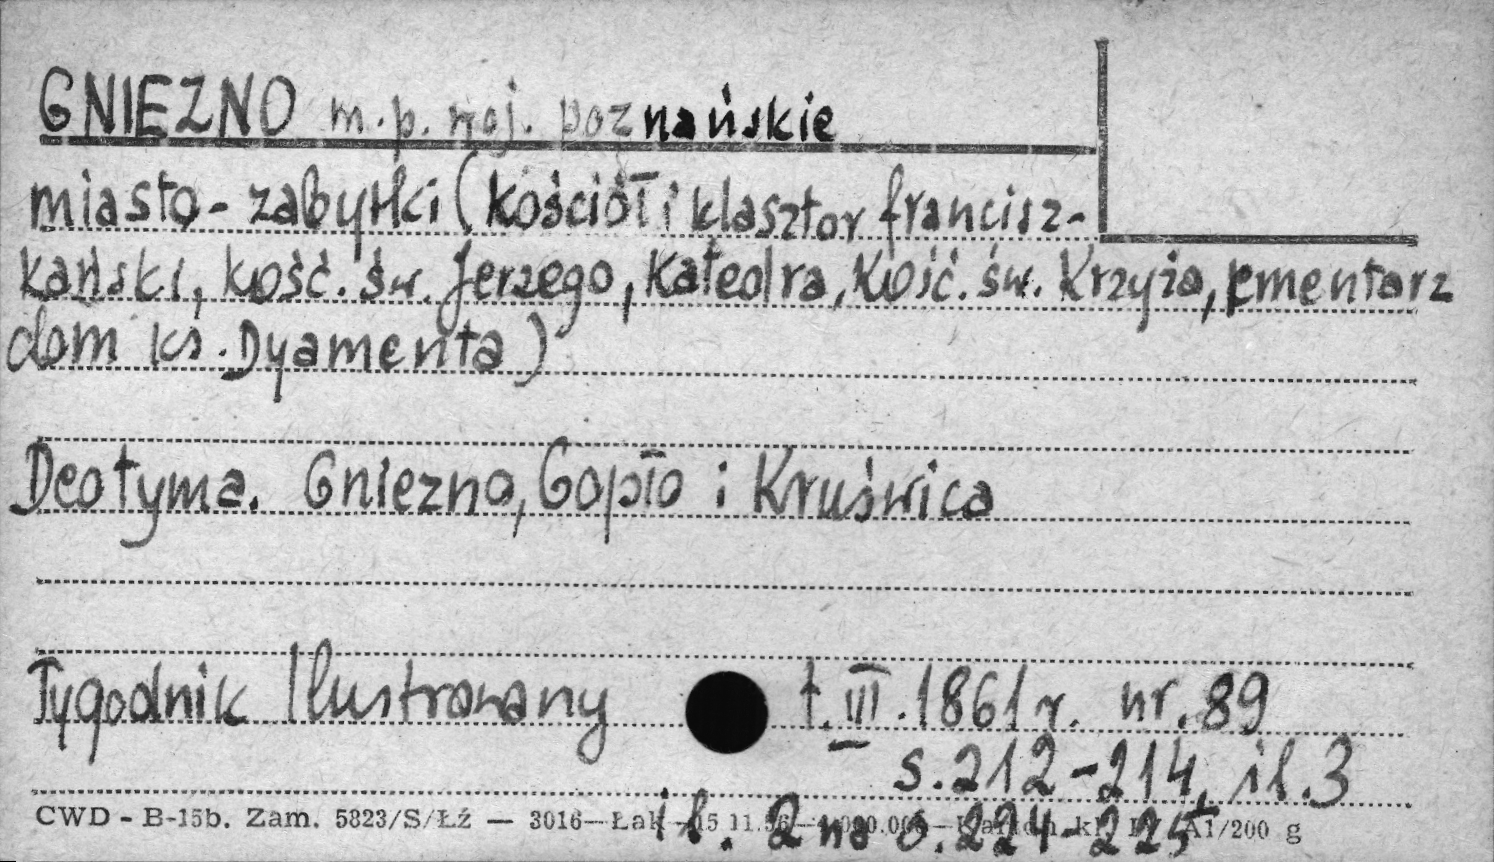 GNIEZNO m.p. woj. poznańskie
miasto - zabytki (kościół i klasztor francisz-
kański, kość. św. Jerzego, Katedra, Kość. św. Krzyża, cmentarz
dom ks. Dyamenta)
Deotyma. Gniezno, Gopło i Kruświca
Tygodnik Ilustrowany t. III. 1861 r. nr. 89
s. 212-214, il. 3
il. 2 na s. 224-225
CWD - B-15b. Zam. 5823/S/Łź — 3016 — Łak — 15.11.56 — kl. A1/200 g